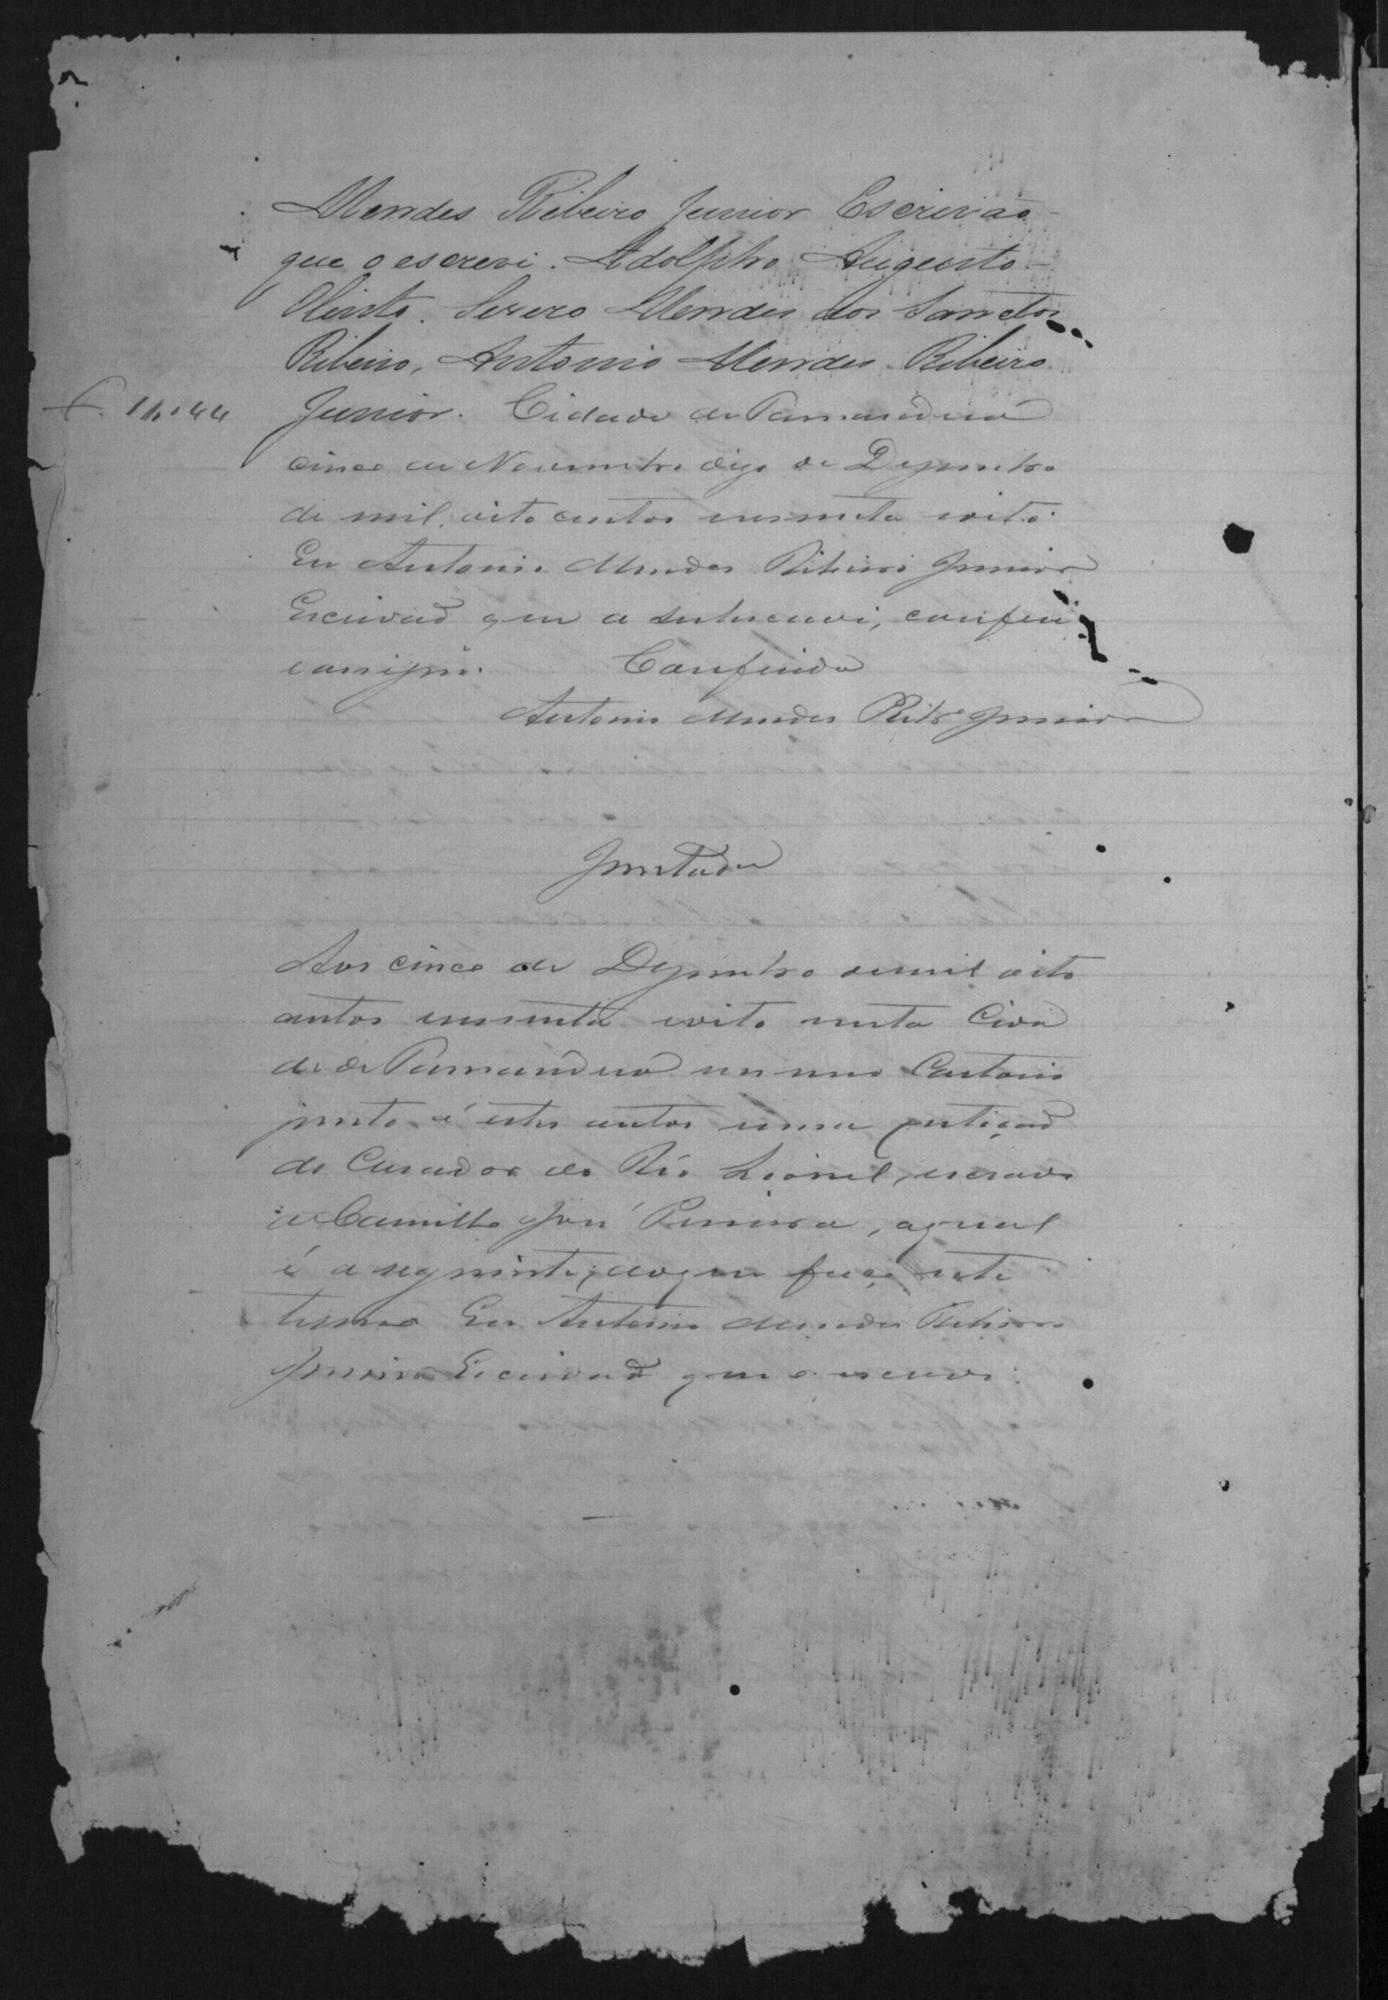 Mendes Ribeiro Junior Escrivão
que o escrevi. Adolpho Augusto
Olinto. Severo Mendes dos Sanctos
Ribeiro, Antonio Mendes Ribeiro
Junior. Cidade de Tamanduá
cinco de Novembro digo de Dezembro
de mil oito centos sessenta e oito.
Eu Antonio Mendes Ribeiro Junior
Escrivaõ que a subscrevi, conferi
Conferida
Antonio Mendes Ribr.o Junior
Juntada
Aos cinco de Dezembro de mil oito
centos sessenta e oito nesta Cida
de de Tamanduá em meu Cartorio
junto á estes autos uma petiçaõ
do Curador do Réo Leonel, escravo
de Camillo José Pereira, a qual
é a seguinte; do que faço este
termo Eu Antonio Mendes Ribeiro
Junior Escrivaõ que o escrevi.